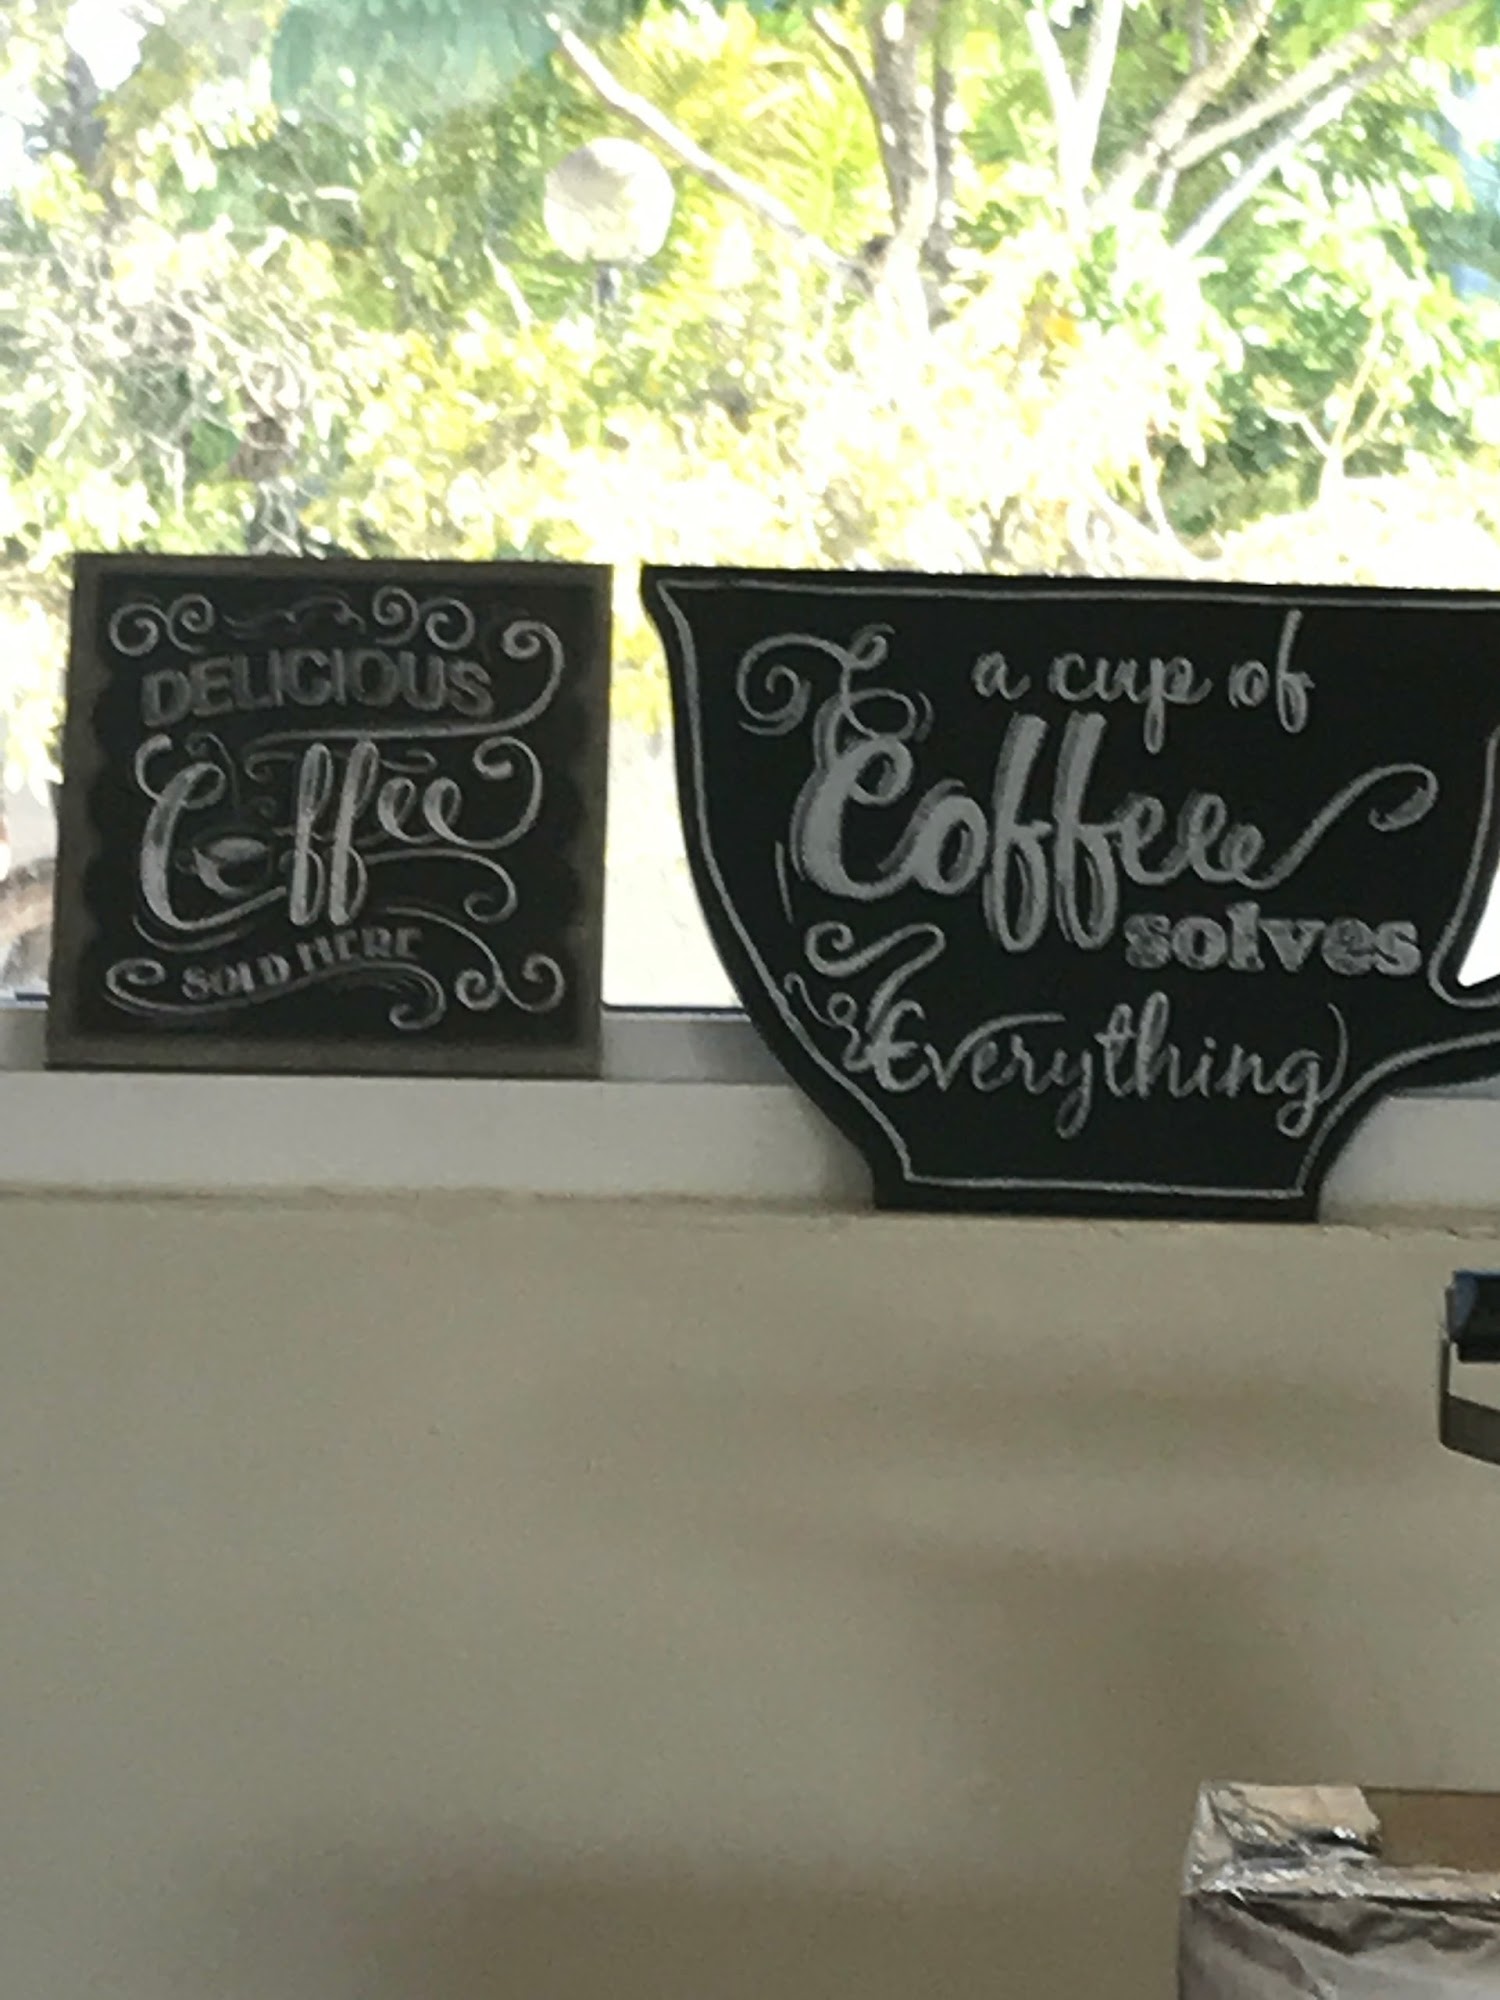 DELICIOUS
Coffee
SOLD HERE
a cup of
Coffee
solves
Everything